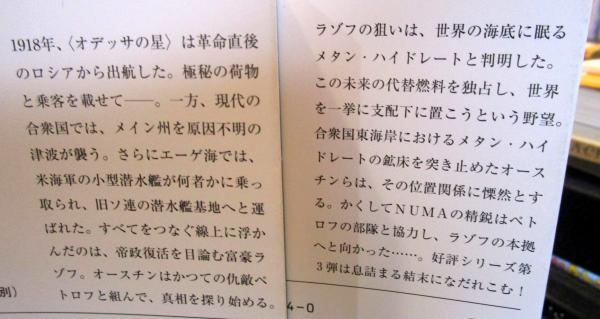 1918年、〈オデッサの星〉は革命直後
のロシアから出航した。極秘の荷物
と乗客を載せて――。一方、現代の
合衆国では、メイン州を原因不明の
津波が襲う。さらにエーゲ海では、
米海軍の小型潜水艦が何者かに乗っ
取られ、旧ソ連の潜水艦基地へと運
ばれた。すべてをつなぐ線上に浮か
んだのは、帝政復活を目論む富豪ラ
ゾフ。オースチンはかつての仇敵ペ
トロフと組んで、真相を探り始める。
別）
ラゾフの狙いは、世界の海底に眠る
メタン・ハイドレートと判明した。
この未来の代替燃料を独占し、世界
を一挙に支配下に置こうという野望。
合衆国東海岸におけるメタン・ハイ
ドレートの鉱床を突き止めたオース
チンらは、その位置関係に慄然とす
る。かくしてNUMAの精鋭はペト
ロフの部隊と協力し、ラゾフの本拠
へと向かった……。好評シリーズ第
3弾は息詰まる結末になだれこむ！
4-0